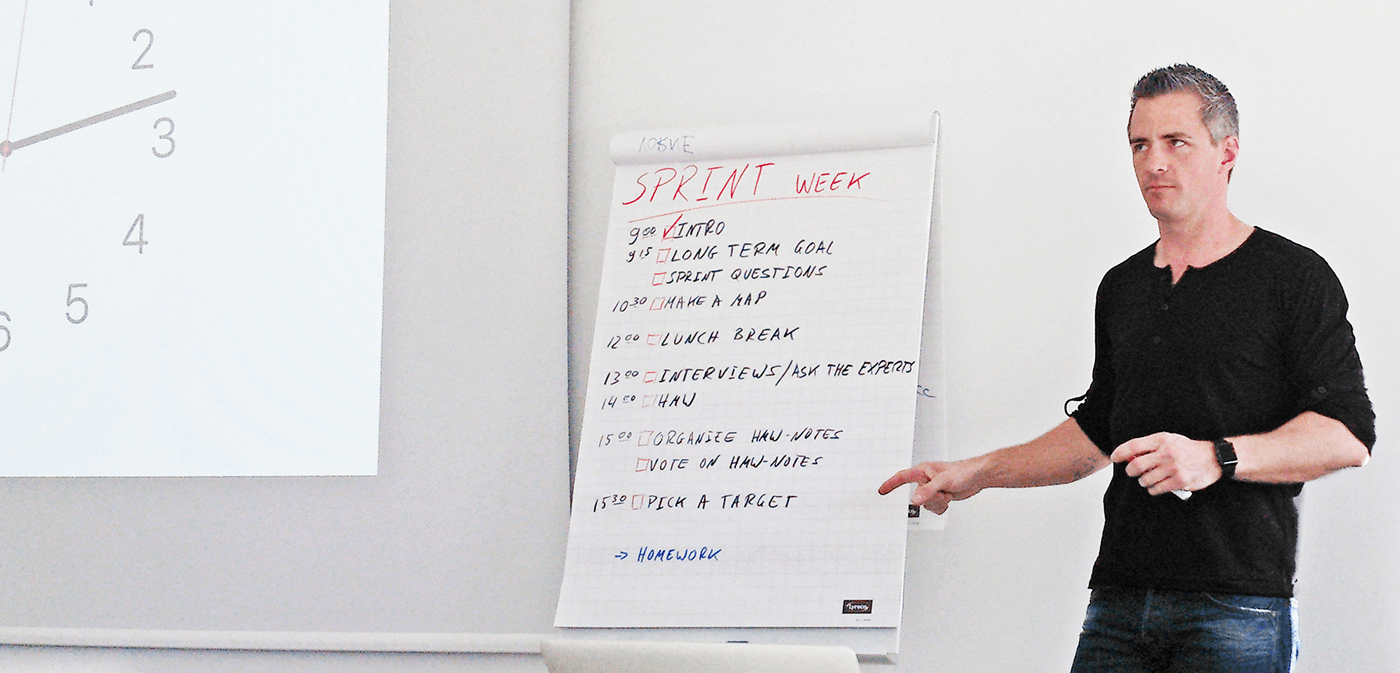 2
3
4
5
6
SPRINT WEEK
9 00 INTRO
9 15 LONG TERM GOAL
SPRINT QUESTIONS
10 30 MAKE A MAP
12 00 LUNCH BREAK
13 00 INTERVIEWS/ASK THE EXPERTS
14 00 HMW
15 00 ORGANIZE HMW-NOTES
VOTE ON HMW-NOTES
15 30 PICK A TARGET
→ HOMEWORK